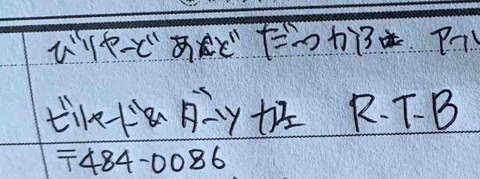 びりやーど あんど だーつ かふぇ アール
ビリヤード&ダーツ カフェ R.T.B
〒484-0086